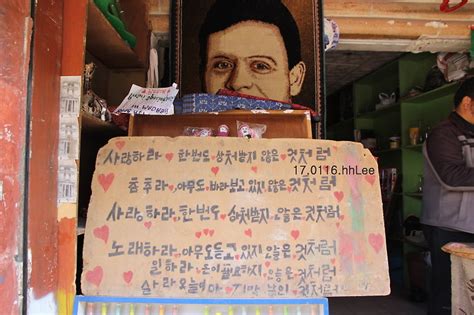 사랑하라♥한번도 상처받지 않은 것처럼
춤추라, 아무도 바라보고 있지 않은 것처럼
사랑하라, 한번도 상처받지 않은 것처럼
노래하라, 아무도 듣고 있지 않은 것처럼
일하라 돈이 필요하지 않은 것처럼
살라 오늘이 마지막 날인 것처럼
17.0116.hhLee